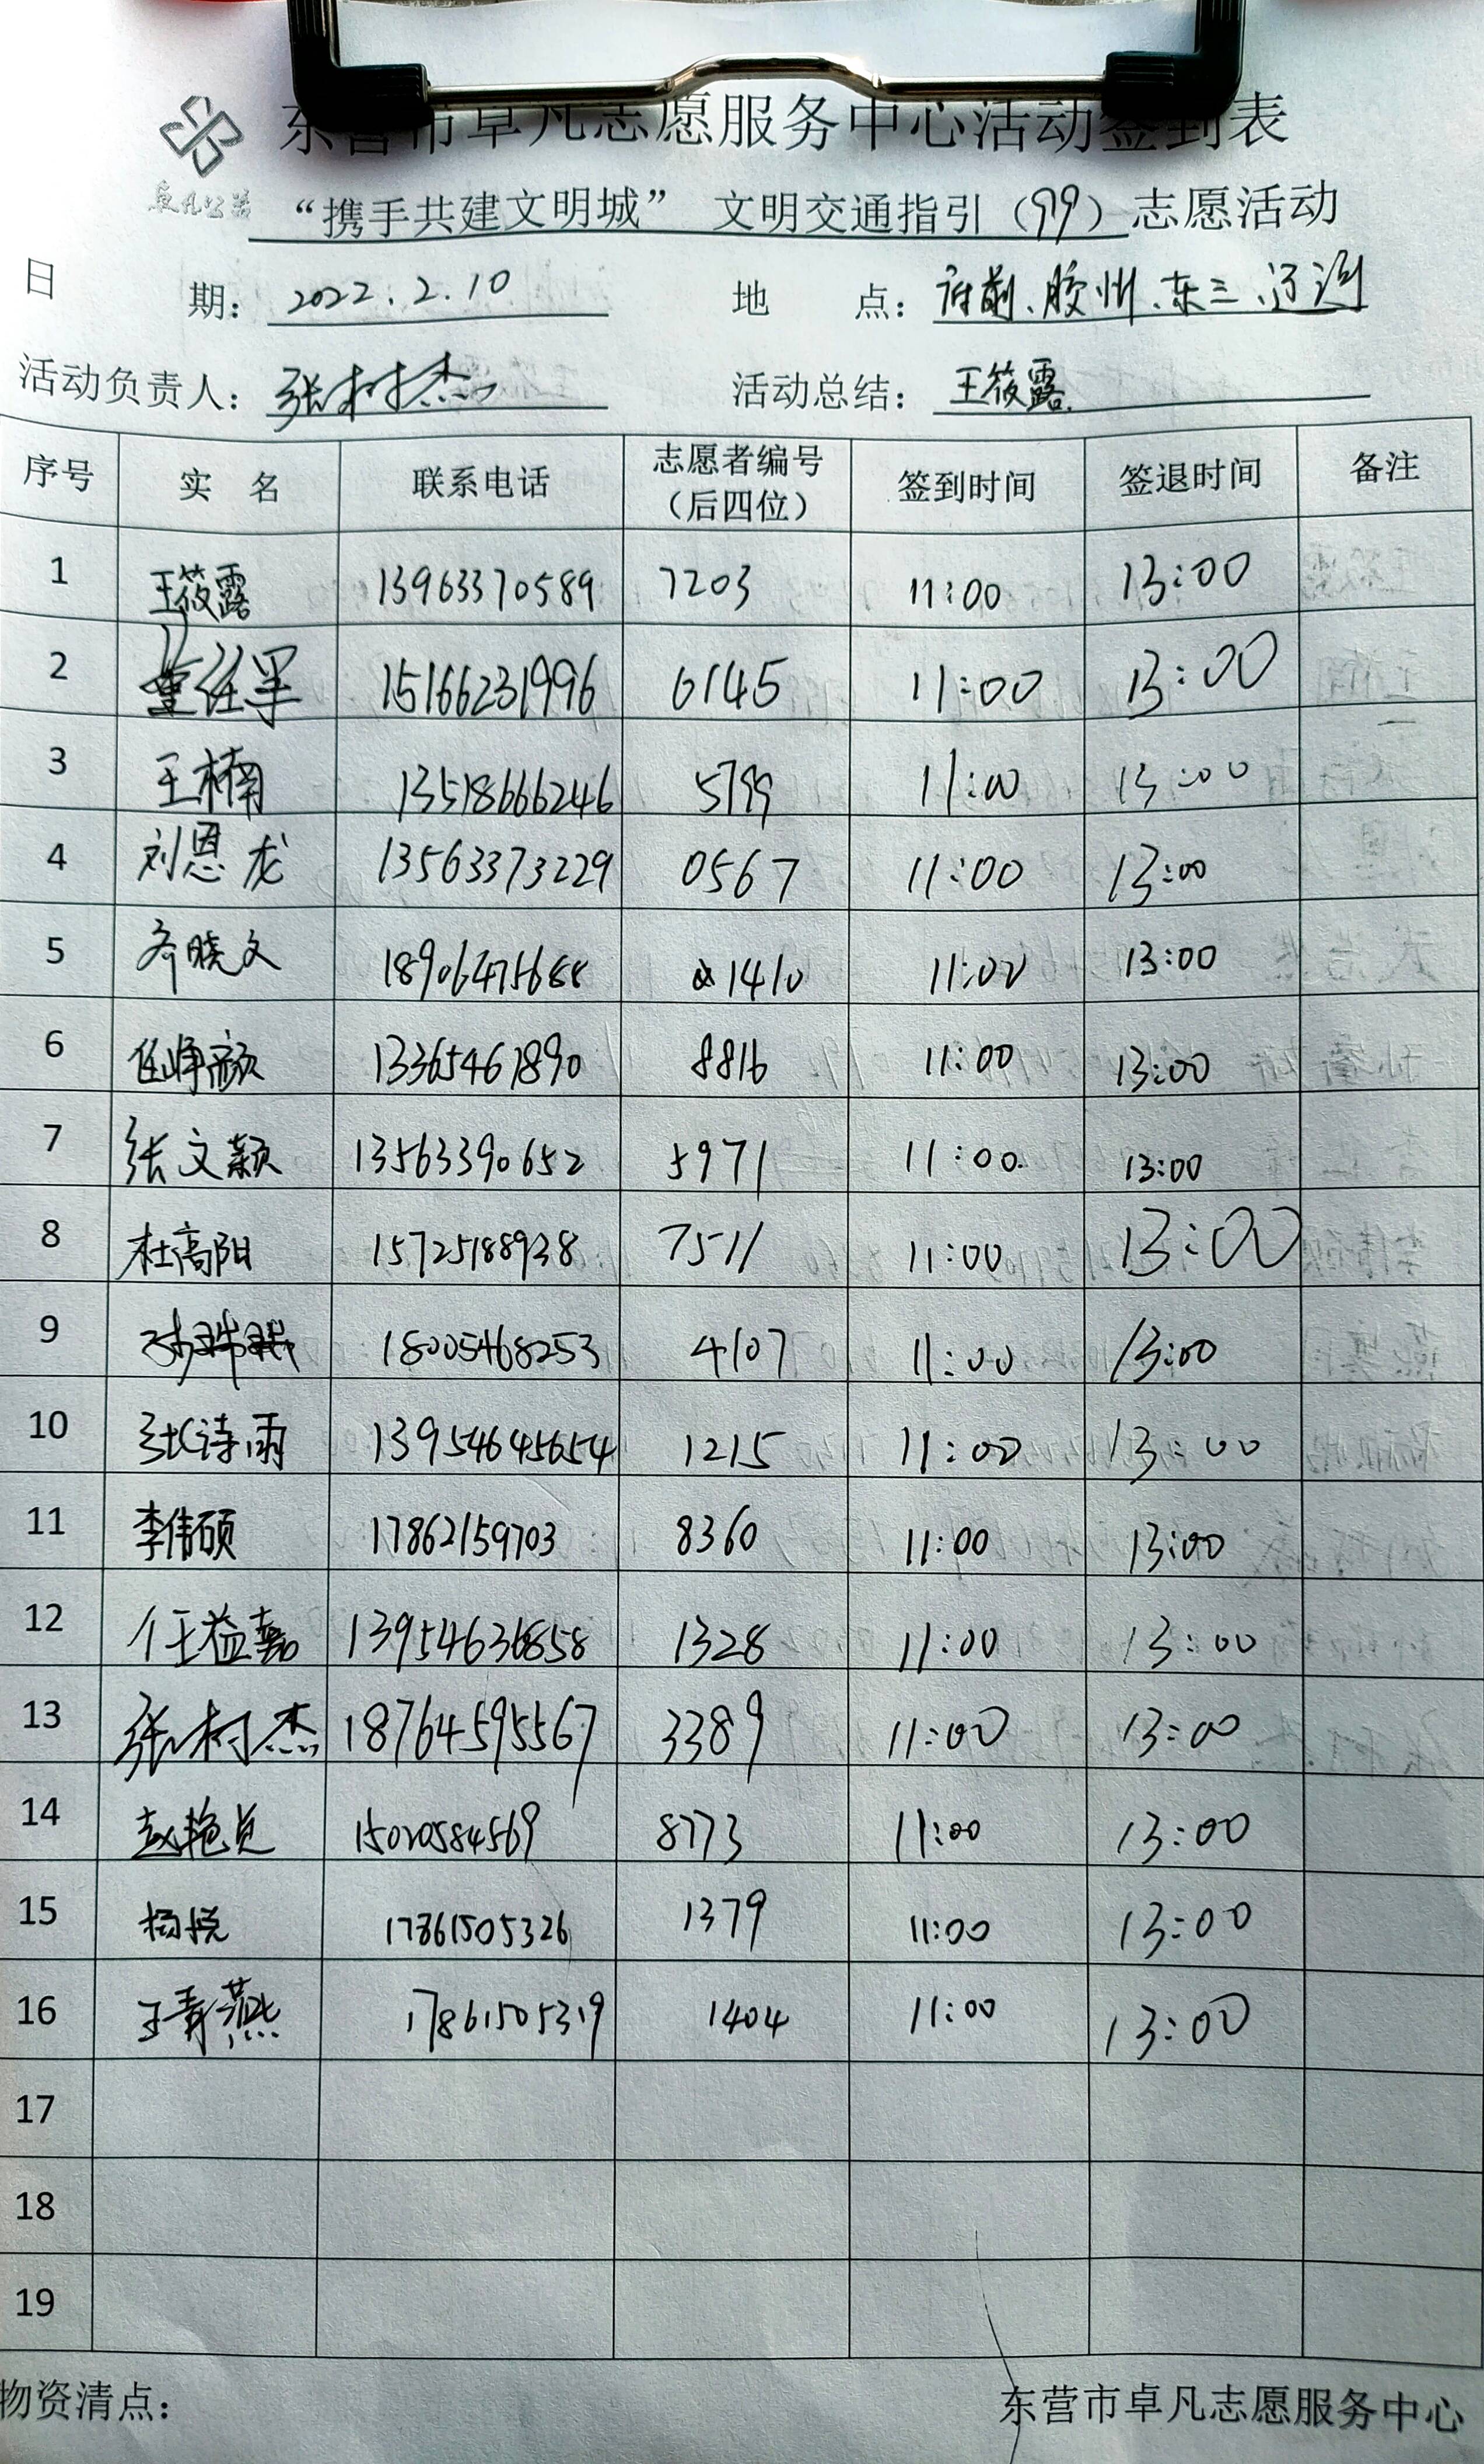 东营市卓凡志愿服务中心活动签到表
卓凡公益
“携手共建文明城” 文明交通指引（99）志愿活动
日 期：2022.2.10 地 点：府前、胶州、东三、辽河
活动负责人：张树杰 活动总结：王筱露
序号 实 名 联系电话 志愿者编号（后四位） 签到时间 签退时间 备注
1 王筱露 13963370589 7203 11:00 13:00
2 董任军 15166231996 6145 11:00 13:00
3 王楠 13518666246 5799 11:00 13:00
4 刘恩龙 13563373229 0567 11:00 13:00
5 齐晓文 18906475688 1410 11:00 13:00
6 任峥颜 13365461890 8816 11:00 13:00
7 张文颖 13563390652 5971 11:00 13:00
8 杜高阳 15725188938 7511 11:00 13:00
9 18005468253 4107 11:00 13:00
10 张诗雨 13954645654 1215 11:00 13:00
11 李倩硕 17862159703 8360 11:00 13:00
12 任益嘉 13954636858 1328 11:00 13:00
13 张树杰 18764595567 3389 11:00 13:00
14 赵艳 15020584569 8773 11:00 13:00
15 杨悦 17861505326 1379 11:00 13:00
16 王青燕 17861505319 1404 11:00 13:00
17
18
19
物资清点： 东营市卓凡志愿服务中心